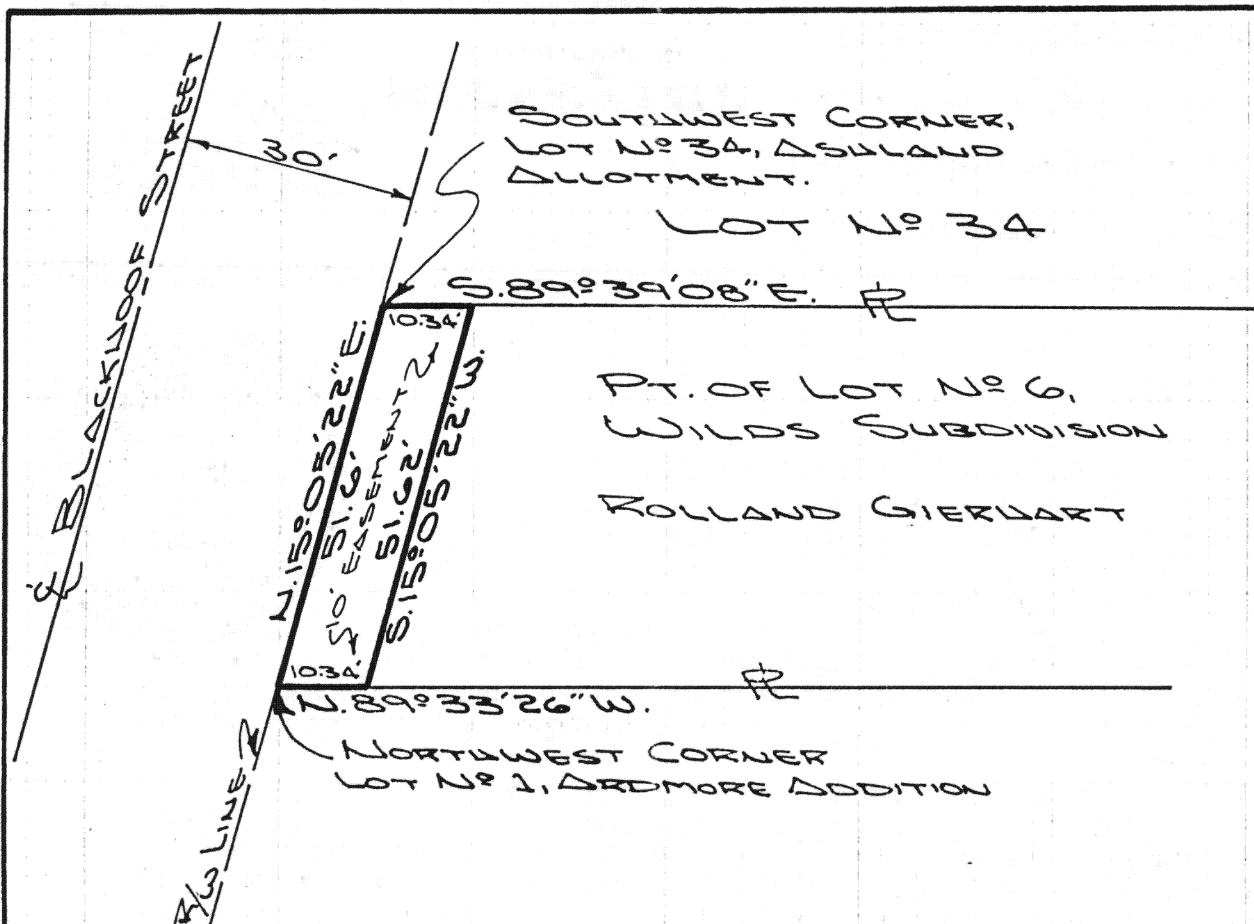 ℄ BLACKHOOF STREET
30'
SOUTHWEST CORNER,
LOT Nº 34, ASHLAND
ALLOTMENT.
LOT Nº 34
S.89º39'08"E.
℄
10.34'
N.15º05'22"E.
51.6'
10' EASEMENT
51.62'
S.15º05'22"W.
PT. OF LOT Nº 6,
WILDS SUBDIVISION
ROLLAND GIERHART
10.34'
N.89º33'26"W.
NORTHWEST CORNER
LOT Nº 1, ARDMORE ADDITION
R/W LINE